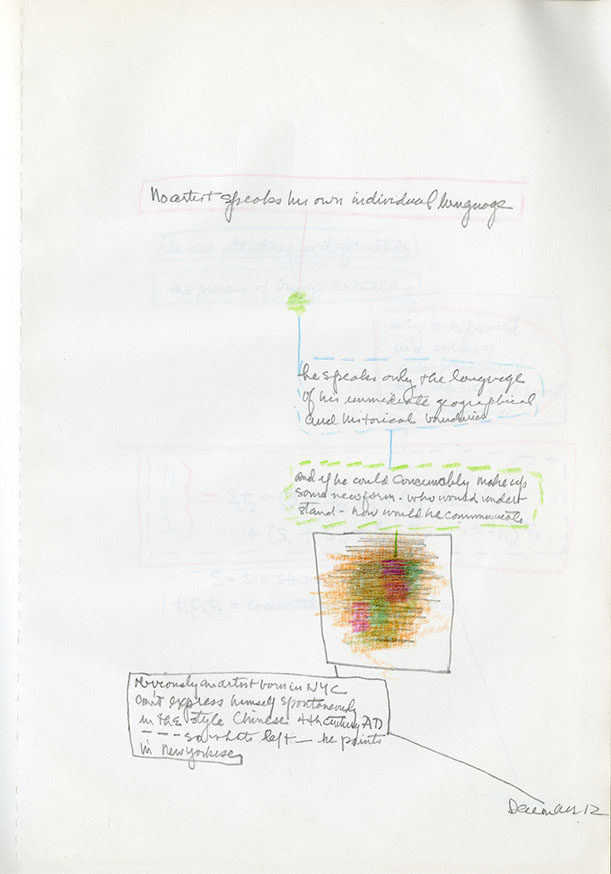 No artist speaks his own individual language
he speaks only the language
of his immediate geographical
and historical boundries
and if he could conceivably make up
some new form - who would under-
stand - how would he communicate
obviously an artist born in NYC
can't express himself spontaneously
in the style Chinese 4th century AD
- - - so whats left - he paints
in New Yorkese
An art structure in
the process of being created
may be expressed
S =